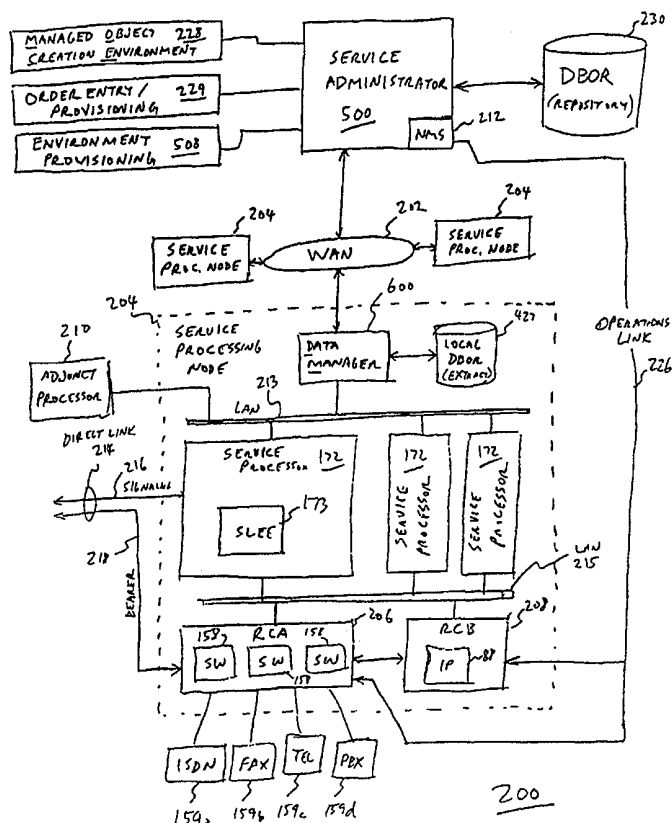 MANAGED OBJECT 228
CREATION ENVIRONMENT
ORDER ENTRY /
PROVISIONING 229
ENVIRONMENT
PROVISIONING 508
SERVICE
ADMINISTRATOR
500
NMS
212
230
DBOR
(REPOSITORY)
204
SERVICE
PROC. NODE
202
WAN
204
SERVICE
PROC. NODE
600
204
SERVICE
PROCESSING
NODE
DATA
MANAGER
427
LOCAL
DBOR
(EXTRACT)
OPERATIONS
LINK
226
210
ADJUNCT
PROCESSOR
213
LAN
DIRECT LINK
214
216
SIGNALLING
SERVICE
PROCESSOR 172
173
SLEE
172
SERVICE
PROCESSOR
172
SERVICE
PROCESSOR
LAN
215
218
BEARER
206
RCA
158
SW
SW
158
158
SW
208
RCB
IP
88
ISDN
FAX
TEL
PBX
159a
159b
159c
159d
200